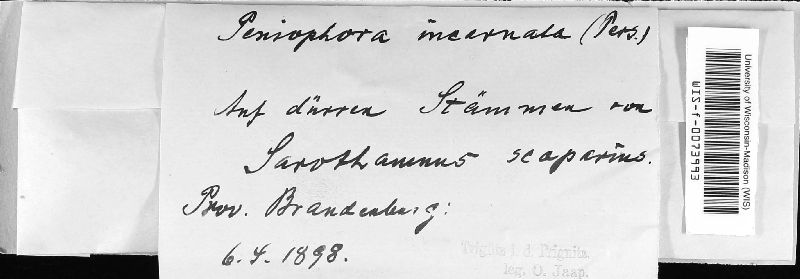 Peniophora incarnata (Pers.)
Auf dürren Stämmen von
Sarothamnus scoparius.
Prov. Brandenburg:
6.4.1898.
Triglitz i. d. Prignitz,
leg. O. Jaap.
University of Wisconsin-Madison (WIS)
WIS-f-0073993